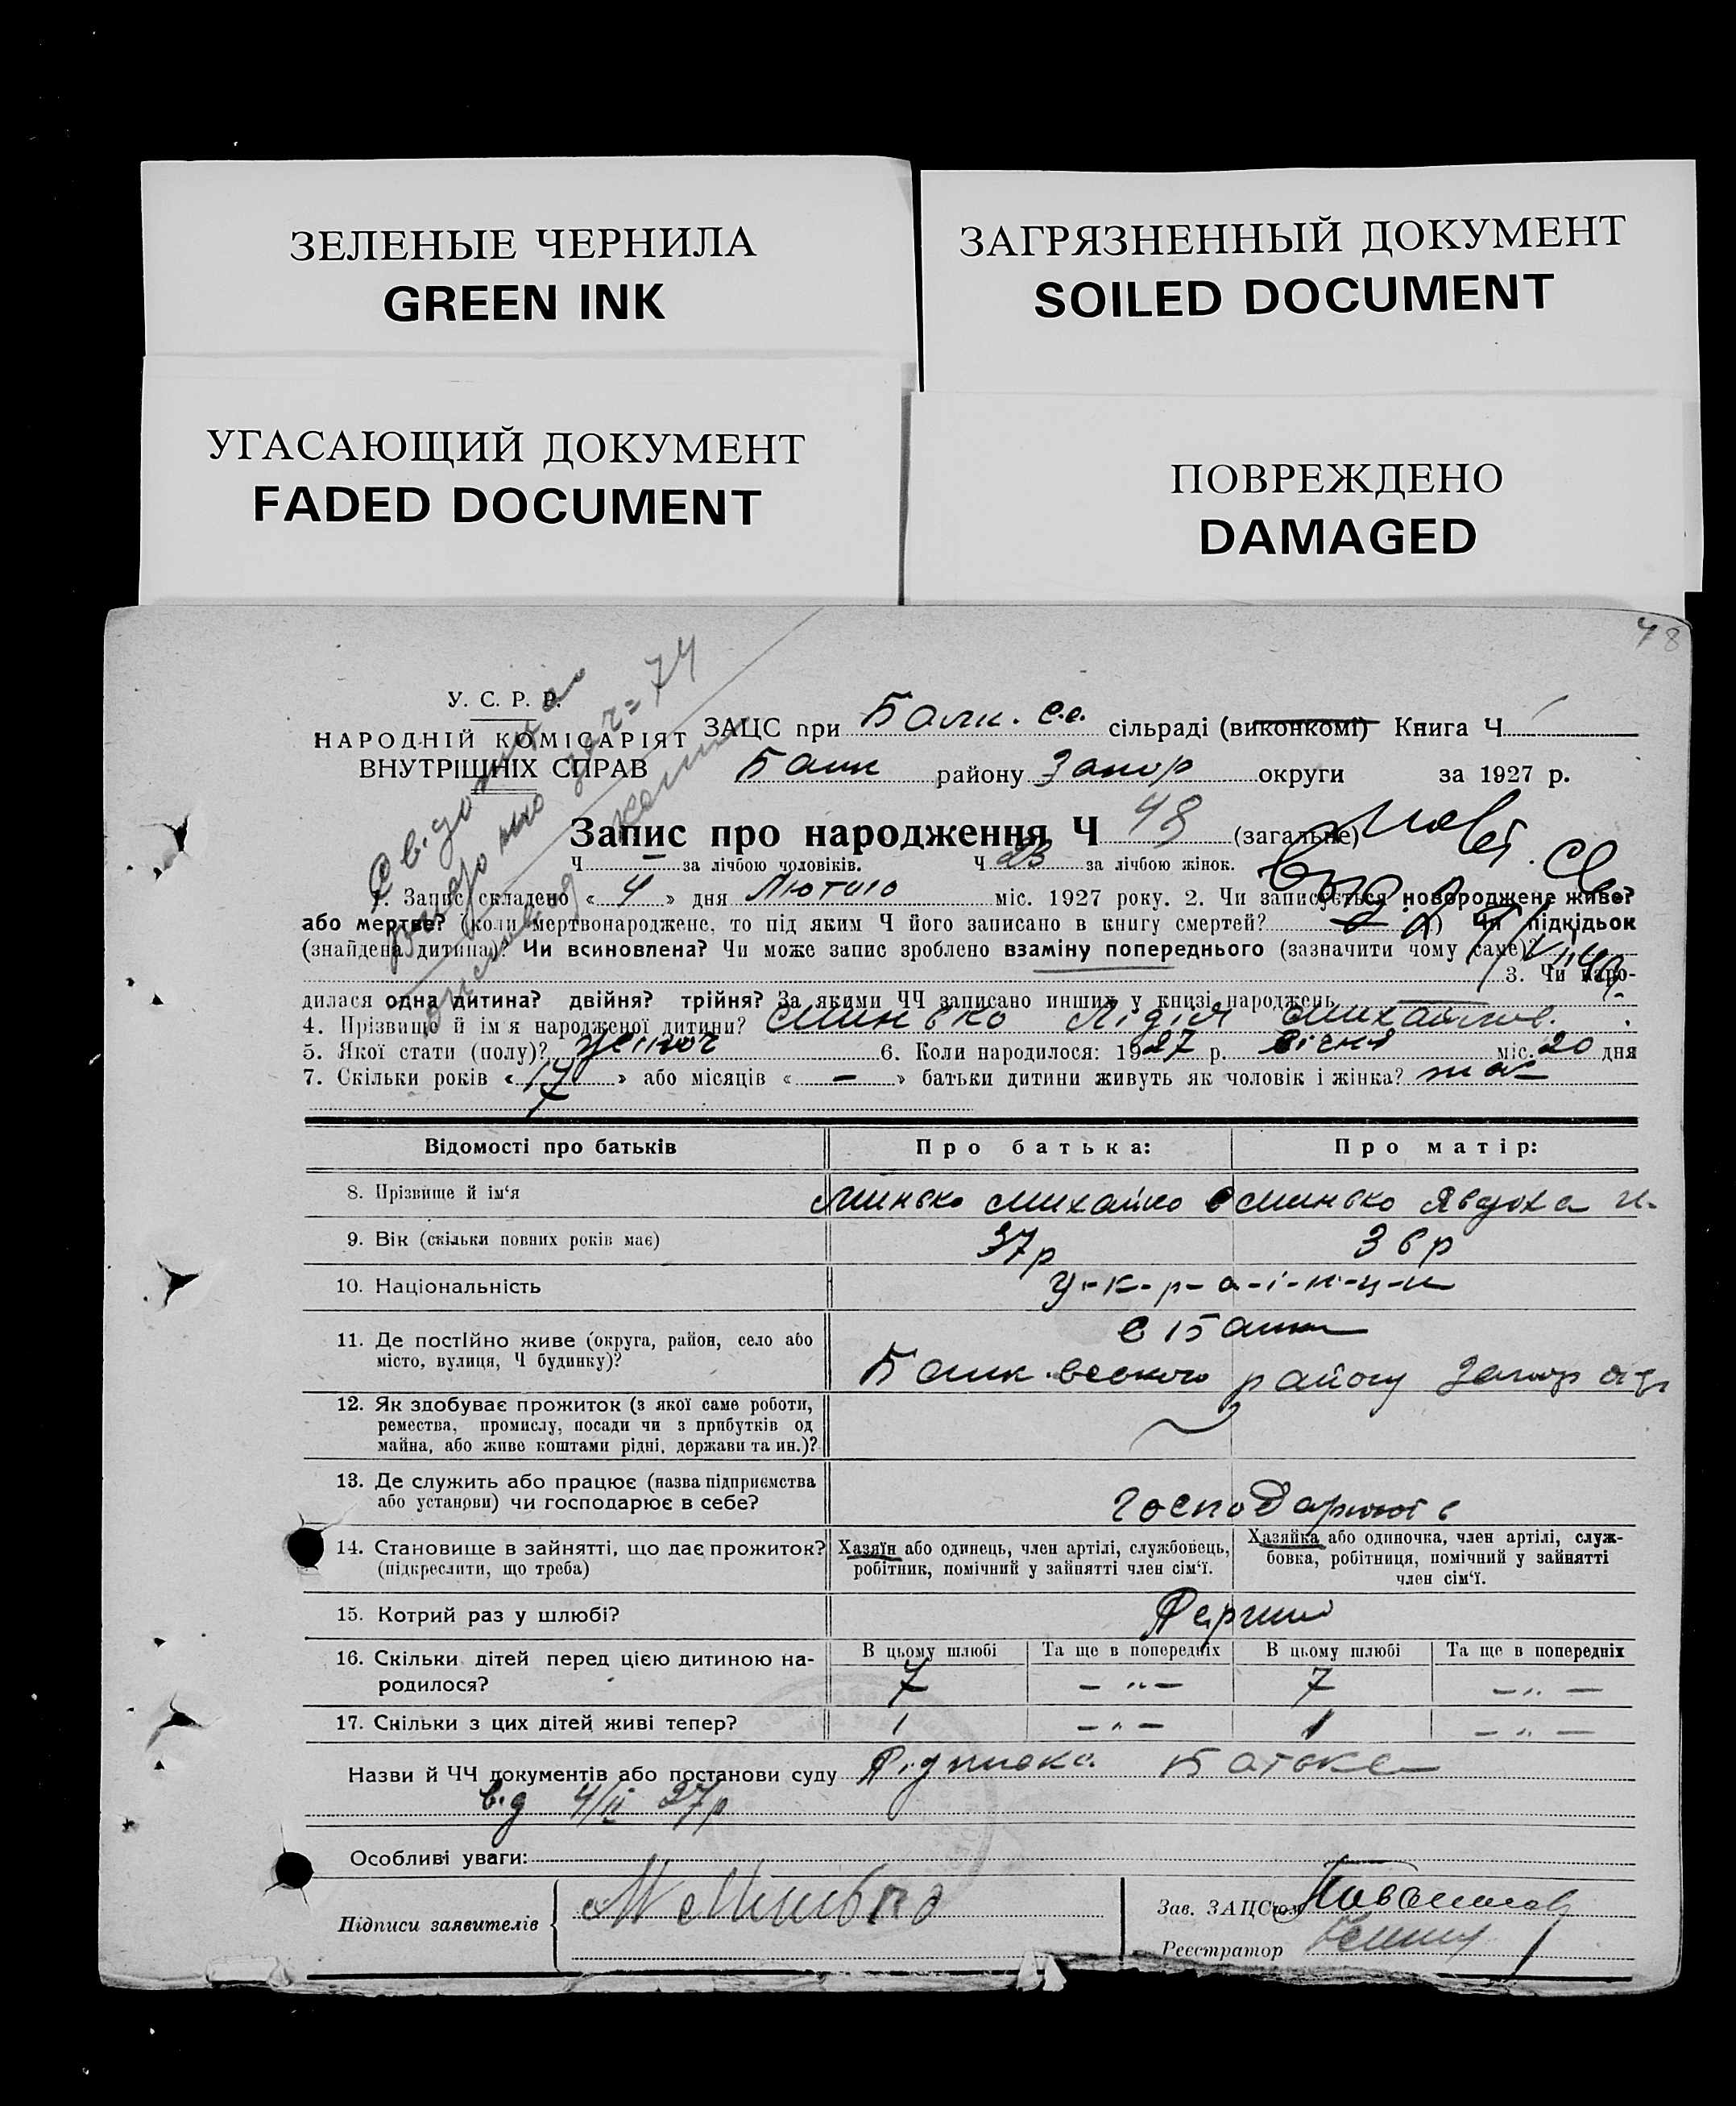 ЗЕЛЕНЫЕ ЧЕРНИЛА
GREEN INK
ЗАГРЯЗНЕННЫЙ ДОКУМЕНТ
SOILED DOCUMENT
УГАСАЮЩИЙ ДОКУМЕНТ
FADED DOCUMENT
ПОВРЕЖДЕНО
DAMAGED
48
У. С. Р. Р.
НАРОДНІЙ КОМІСАРІЯТ
ВНУТРІШНІХ СПРАВ
ЗАЦС при сільраді (виконкомі) Книга Ч
району Запор округи за 1927 р.
Запис про народження Ч 48 (загальне)
Ч — за лічбою чоловіків. Ч 23 за лічбою жінок.
1. Запис складено « 4 » дня Лютого міс. 1927 року. 2. Чи записується новороджене живе?
або мертве? (коли мертвонароджене, то під яким Ч його записано в книгу смертей? ) Чи підкідьок
(знайдена дитина)? Чи всиновлена? Чи може запис зроблено взаміну попереднього (зазначити чому саме)?
3. Чи наро-
дилася одна дитина? двійня? трійня? За якими ЧЧ записано инших у книзі народжень
4. Прізвище й ім'я народженої дитини? Минько Лідія Михайлов.
5. Якої стати (полу)? жіноч 6. Коли народилося: 1927 р. Січня міс. 20 дня
7. Скільки років « 17 » або місяців « — » батьки дитини живуть як чоловік і жінка?
Відомості про батьків
Про батька:
Про матір:
8. Прізвище й ім'я
Минько Михайло
Минько Явдоха
9. Вік (скільки повних років має)
37 р
36 р
10. Національність
У-к-р-а-і-н-ц-и
11. Де постійно живе (округа, район, село або
місто, вулиця, Ч будинку)?
району Запор
12. Як здобуває прожиток (з якої саме роботи,
ремества, промислу, посади чи з прибутків од
майна, або живе коштами рідні, держави та ин.)?
13. Де служить або працює (назва підприємства
або установи) чи господарює в себе?
14. Становище в зайнятті, що дає прожиток?
(підкреслити, що треба)
Хазяїн або одинець, член артілі, службовець,
робітник, помічний у зайнятті член сім'ї.
Хазяйка або одиночка, член артілі, служ-
бовка, робітниця, помічний у зайнятті
член сім'ї.
15. Котрий раз у шлюбі?
Перший
16. Скільки дітей перед цією дитиною на-
родилося?
В цьому шлюбі
Та ще в попередніх
В цьому шлюбі
Та ще в попередніх
7 — „ — 7 — „ —
17. Скільки з цих дітей живі тепер?
1 — „ — 1 — „ —
Назви й ЧЧ документів або постанови суду Підписка Батька
від 4/II 27р
Особливі уваги:
Підписи заявителів
М Минько
Зав. ЗАЦСом
Реєстратор